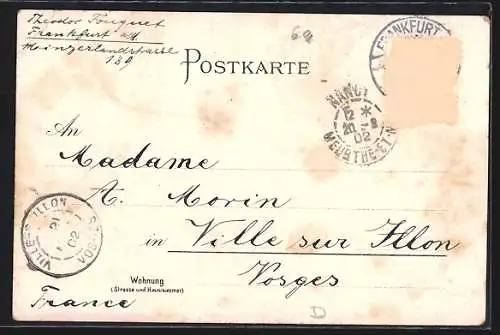 Theodor Fouquet
Frankfurt a/M
Mainzerlandstrasse
189
POSTKARTE
FRANKFURT
NANCY
12 *
20 -8
02
MEURTHE-ET-M
An
Madame
A. Morin
in Ville sur Illon
Vosges
VILLE-S-ILLON
21
02
VOSGES
Wohnung
(Strasse und Hausnummer)
France